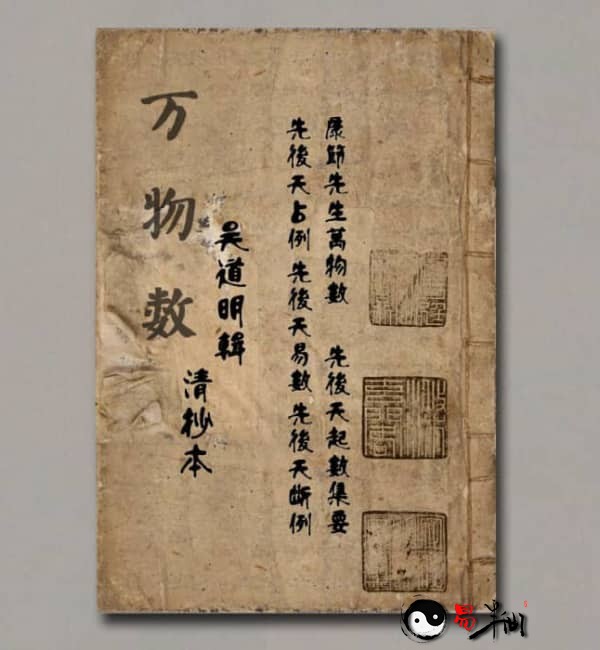 康節先生萬物數 先後天起數集要
先後天占例 先後天易數 先後天斷例
吴道明輯
清抄本
万物数
易半仙